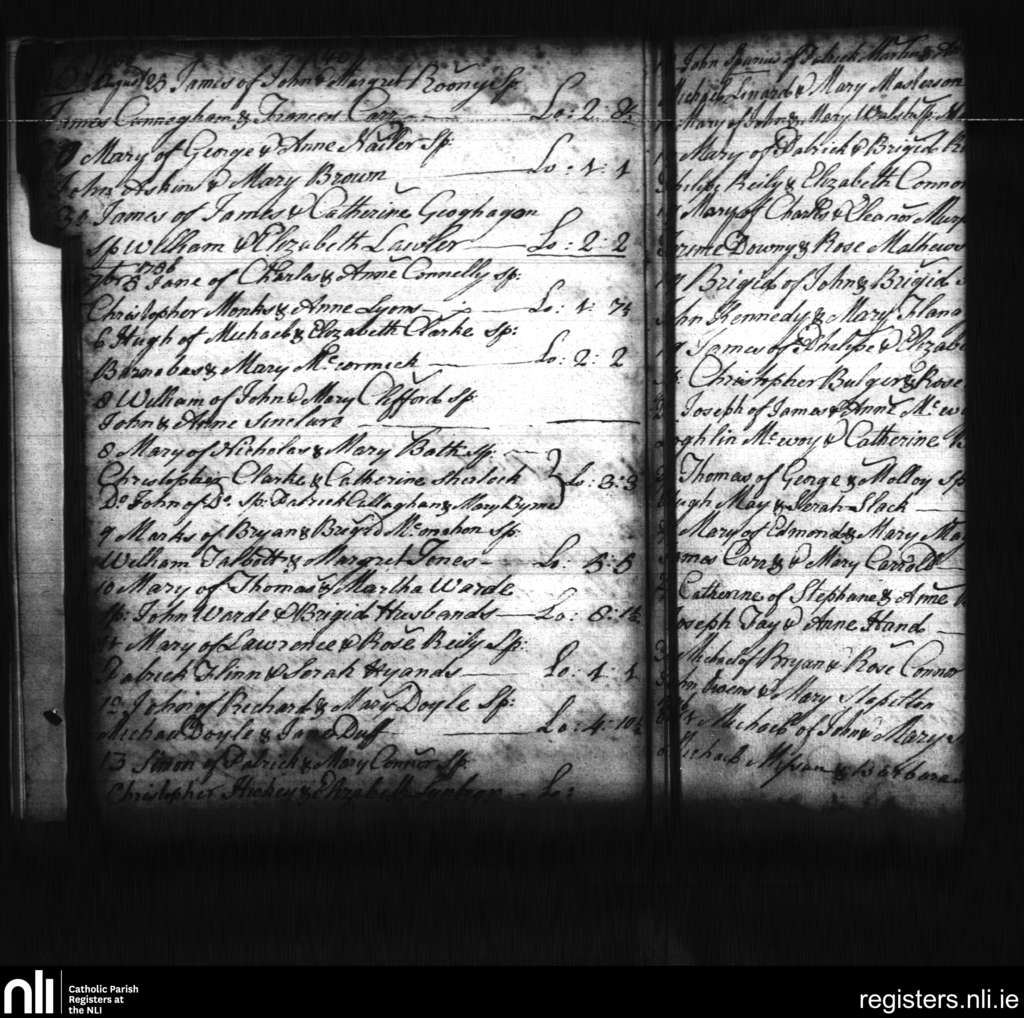 August 23 James of John & Margret Rooney Sp:
James Cunnegham & Frances Carr Lo: 2: 8½
Mary of George & Anne Nailler Sp:
John Askins & Mary Brown Lo: 1: 1
30 James of James & Catherine Geoghagan
Sp William & Elizabeth Lawler Lo: 2: 2
7br 1786
5 Jane of Charles & Anne Connelly Sp:
Christopher Monks & Anne Lyons Lo: 1: 7½
6 Hugh of Michael & Elizabeth Clarke Sp:
Barnabas & Mary McCormick Lo: 2: 2
8 William of John & Mary Clifford Sp:
John & Anne Sinclare
8 Mary of Nicholas & Mary Bath Sp:
Christopher Clarke & Catherine Sherlock Lo: 3: 3
Do John of Do Sp: Patrick Callaghan & Mary Byrne
9 Marks of Bryan & Brigid McMahon Sp:
William Talbott & Margret Jones Lo: 3: 3
10 Mary of Thomas & Martha Warde
Sp: John Warde & Brigid Husbands Lo: 8: 1½
11 Mary of Lawrence & Rose Reily Sp:
Patrick Flinn & Sarah Hyands Lo: 1: 1
12 John of Richard & Mary Doyle Sp:
Michael Doyle & Jane Duff Lo: 4: 10½
13 Simon of Patrick & Mary Connor Sp:
Christopher Hickey & Elizabeth Lo:
John of Patrick
Michael Linard & Mary Masterson
Mary of John & Mary Walsh Sp:
Mary of Patrick & Brigid
Philip Reily & Elizabeth Connor
Mary of Charles & Eleanor
Downy & Rose Mathews
Brigid of John & Brigid
John Kennedy & Mary
James of Phelipe &
Christopher Bulger & Rose
Joseph of James & Anne
McEvoy & Catherine
Thomas of George & Molloy Sp
Hugh May & Sarah Slack
Mary of Edmond & Mary
James Carr & Mary Carroll
Catherine of Stephane & Anne
Joseph Fay & Anne Hand
Michael of Bryan & Rose Connor
John Owens & Mary
Michael of John & Mary
Michael & Barbara
nli
Catholic Parish
Registers at
the NLI
registers.nli.ie